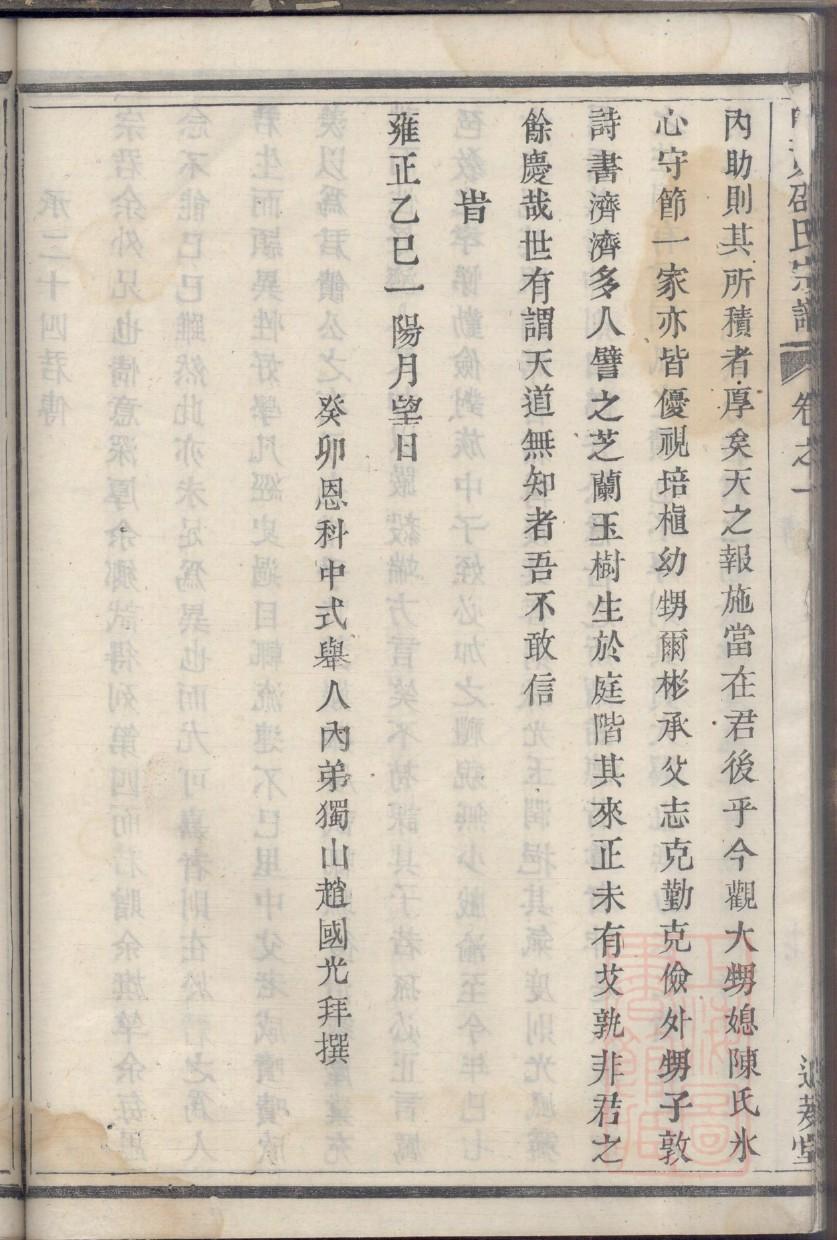 邵氏宗譜 卷之一
內助則其所積者厚矣天之報施當在君後乎今觀大甥媳陳氏氷
心守節一家亦皆優視培植幼甥爾彬承父志克勤克儉外甥子敦
詩書濟濟多人譬之芝蘭玉樹生於庭階其來正未有艾孰非君之
餘慶哉世有謂天道無知者吾不敢信
旹
雍正乙巳一陽月望日
癸卯恩科中式舉人內弟獨山趙國光拜撰